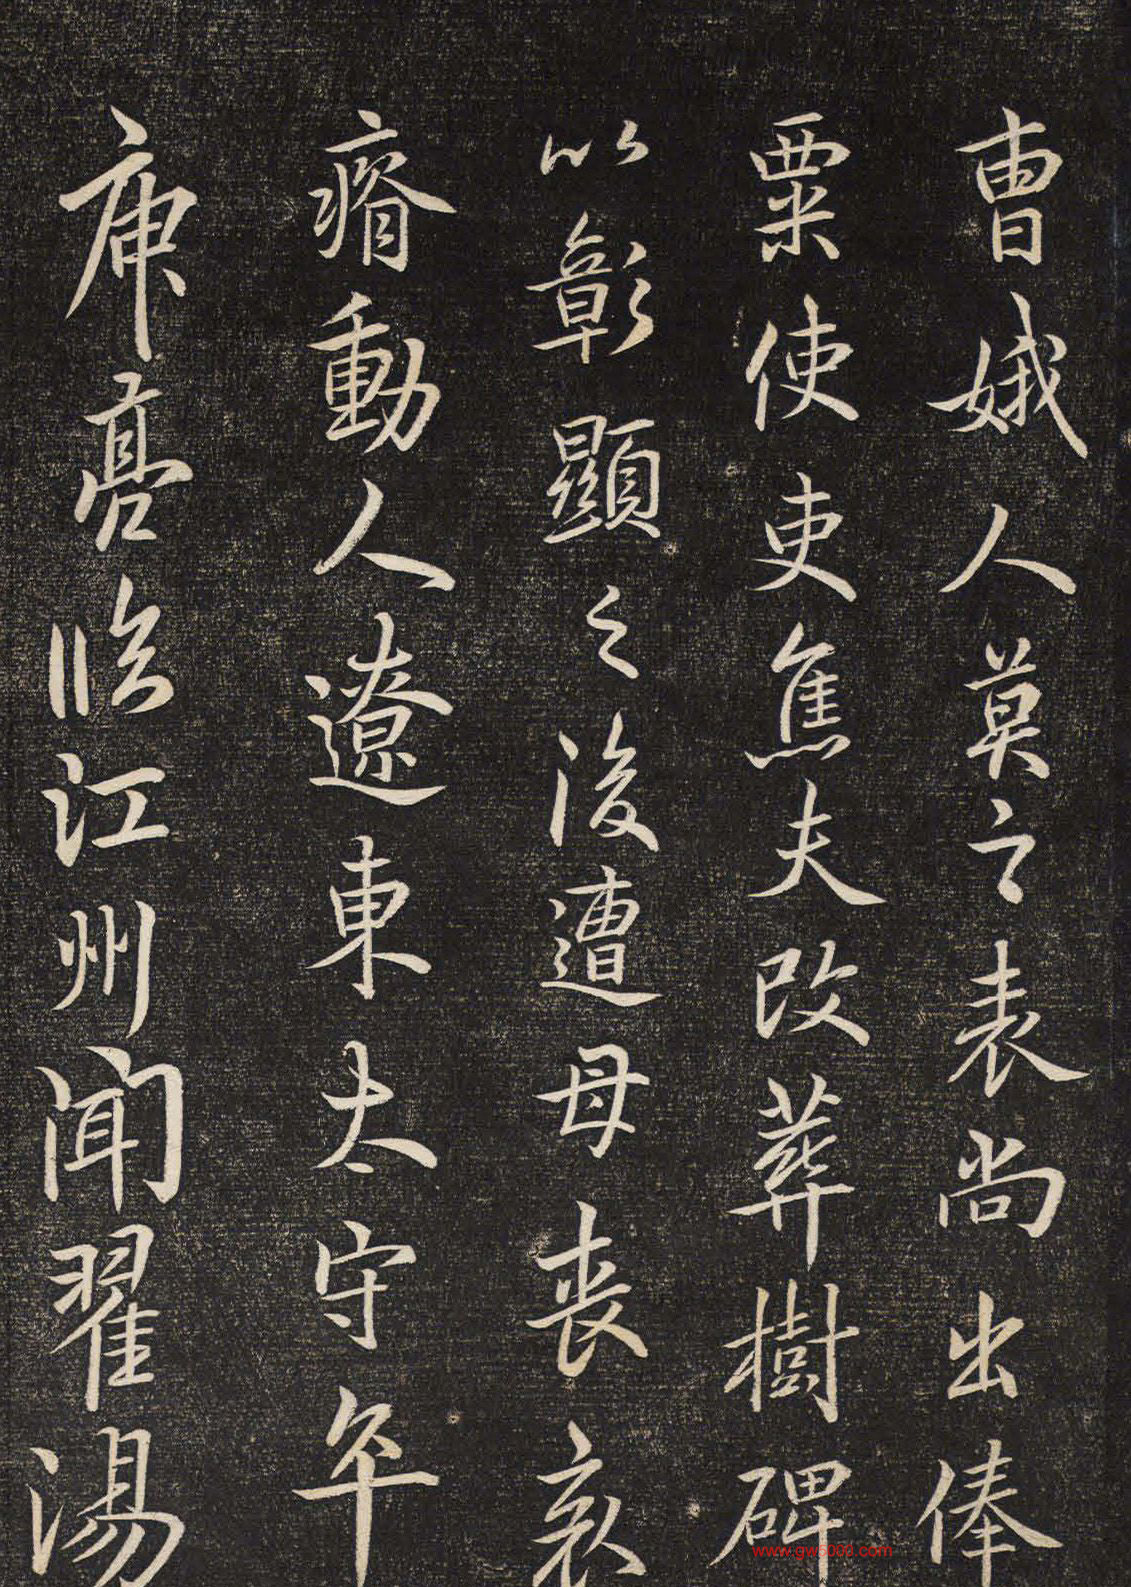 曹娥人莫之表尚出俸
粟使吏焦夫改葬樹碑
以彰顯之後遭母喪哀
瘠動人遼東太守卒
庾亮臨江州聞翟湯
www.gw5000.com